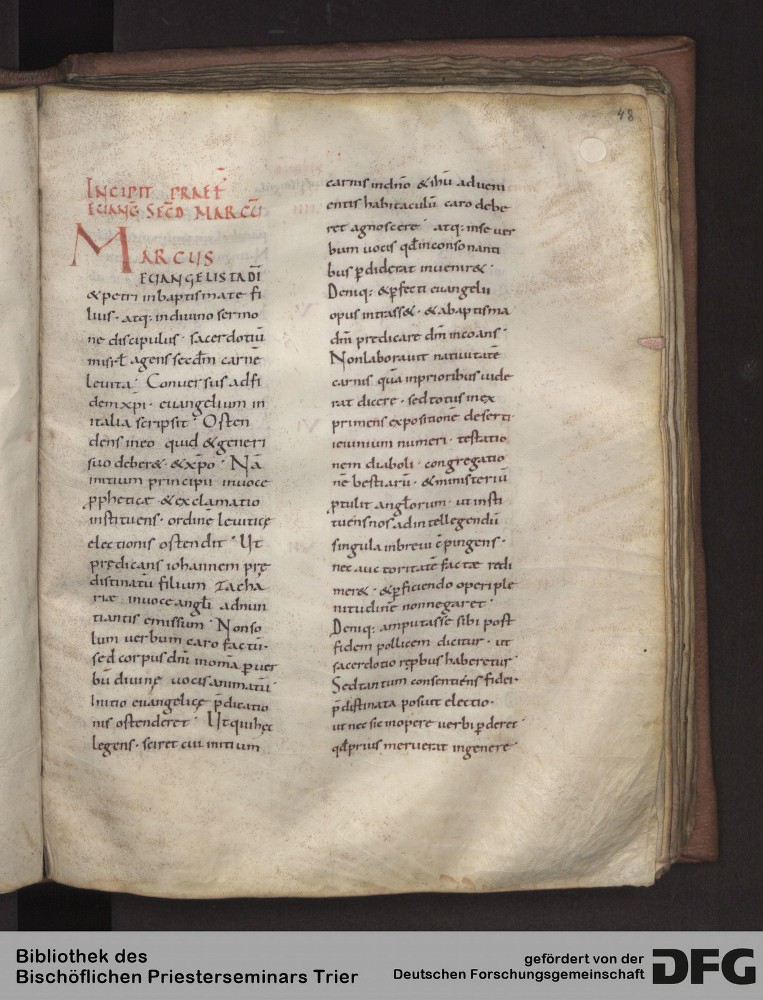 48
INCIPIT PRAEF̄
EUANG̅ SEC̅D MARCU̅
MARCUS
EUANGELISTA DI̅
& petri inbaptismate fi
lius · atq: indiuino sermo
ne discipulus · sacerdotiū
inisrl̄ agens secdm̄ carnē
leuita · Conuersus adfi
dem xp̄i · euangelium in
italia scripsit · Osten
dens ineo quid & generi
suo deber& · & xp̄o · Nā
initium principii inuoce
ꝓpheticæ & exclamatio
instituens · ordinē leuiticę
electionis ostendit · Ut
prędicans iohannem prę
distinatū filium Zacha
riæ inuoce angłi adnun
tiantis emissum · Nonso
lum uerbum caro factū ·
sed corpus dn̄i inom̄a ꝑ uer
bū diuinę uocis animatū
Initio euangelicę p̄dicatio
nis ostenderet · Ut qui hęc
legens · sciret cui initium
carnis indn̄o & ihū adueni
entis habitaculū caro debe
ret agnoscere · atq: inse uer
bum uocis qđ inconsonanti
bus ꝑdiderat inuenir& ·
Deniq: & ꝑfecti euangelii
opus intrass& · & abaptisma
dn̄i predicare dm̄ incoans ·
Nonlaborauit natiuitatē
carnis quā inprioribus uide
rat dicere · sed totus inex
primens expositionē deserti ·
ieiunium numeri · testatio
nem diaboli · congregatio
nē bestiarū · & ministeriū
ꝓtulit angłorum · ut insti
tuens nos adintellegendū
singula inbreui c̄pingens ·
nec auctoritatē factæ redi
mer& · & ꝑficiendo operi ple
nitudinē nonnegaret ·
Deniq: amputasse sibi post
fidem pollicem dicitur · ut
sacerdotio rep̱bus haberetur ·
Sed tantum consentiens fidei ·
p̄distinata posuit electio ·
ut nec sic inopere uerbi ꝑderet ·
qđ prius meruerat ingenere ·
Bibliothek des
Bischöflichen Priesterseminars Trier
gefördert von der
Deutschen Forschungsgemeinschaft
DFG